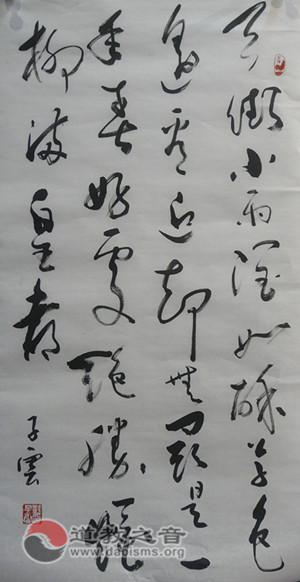 天街小雨潤如酥草色
遥看近却無最是一
年春好處絕勝煙
柳滿皇都
子雲
道教之音
www.daoisms.org